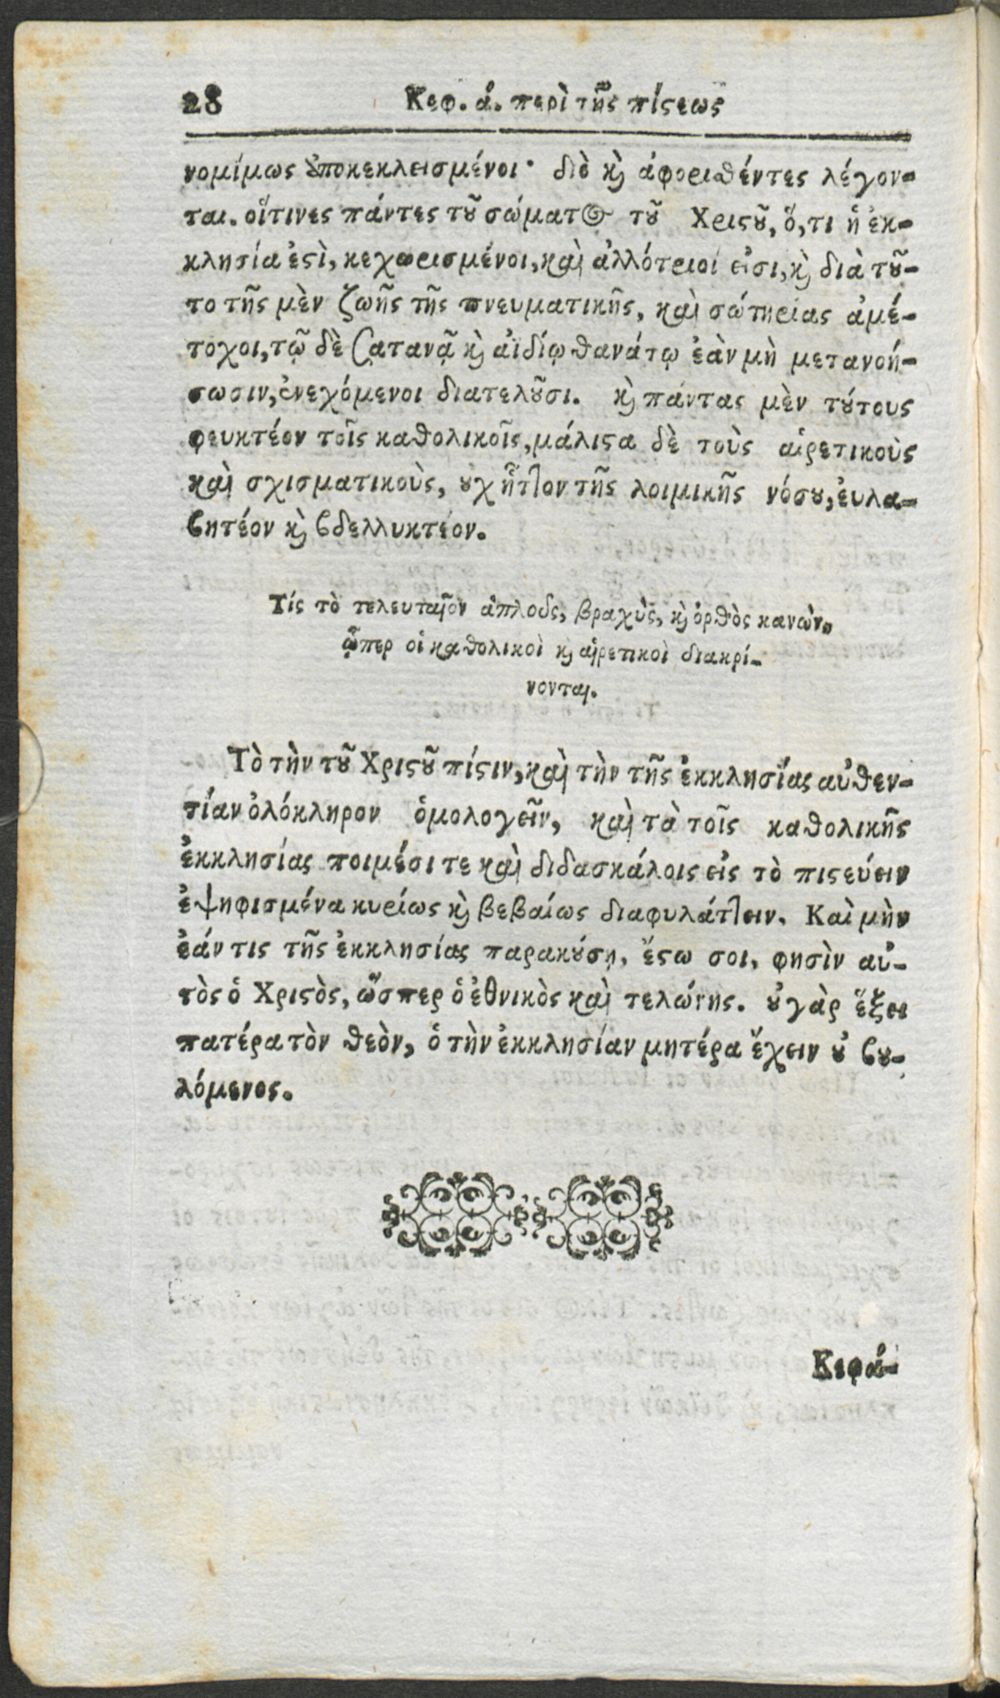 28 Κεφ. ά. περὶ τῆς πίςεως
νομίμως ὑποκεκλεισμένοι· διὸ κ̀ ἀφοριθέντες λέγον-
ται. οἵτινες πάντες τȣ͂ σώματος τȣ͂ Χριςȣ͂, ὅ, τι ἡ ἐκ-
κλησία ἐςὶ, κεχωρισμένοι, καὶ ἀλλότριοί εἰσι, κ̀ διὰ τȣ͂-
το τῆς μὲν ζωῆς τῆς πνευματικῆς, καὶ σώτηρίας ἀμέ-
τοχοι, τῷ δὲ Σατανᾷ κ̀ ἀϊδίῳ θανάτῳ ἐὰν μὴ μετανοή-
σωσιν, ἐνεχόμενοι διατελȣ͂σι. κ̀ πάντας μὲν τȣ́τους
φευκτέον τοῖς καθολικοῖς, μάλιςα δὲ τοὺς αἱρετικοὺς
καὶ σχισματικοὺς, ȣχ ἧττον τῆς λοιμικῆς νόσȣ, ἐυλα-
βητέον κ̀ βδελλυκτέον.
Τίς τὸ τελευταῖον ἁπλοῦς, βραχὺς, κ̀ ὀρθὸς κανὼν,
ᾧπερ οἱ καθολικοὶ κ̀ αἱρετικοὶ διακρί-
νονται.
Τὸ τὴν τȣ͂ Χριςȣ͂ πίςιν, καὶ τὴν τῆς ἐκκλησίας αὐθεν-
τίαν ὁλόκληρον ὁμολογεῖν, καὶ τὰ τοῖς καθολικῆς
ἐκκλησίας ποιμέσι τε καὶ διδασκάλοις εἰς τὸ πιςεύειν
ἐψηφισμένα κυρίως κ̀ βεβαίως διαφυλάττειν. Καὶ μὴν
ἐάν τις τῆς ἐκκλησίας παρακȣ́σῃ, ἔςω σοι, φησὶν αὐ-
τὸς ὁ Χριςὸς, ὥσπερ ὁ ἐθνικὸς καὶ τελώνης. ȣ̓ γὰρ ἕξει
πατέρα τὸν θεὸν, ὁ τὴν ἐκκλησίαν μητέρα ἔχειν ȣ̓ βȣ-
λόμενος.
Κεφά-